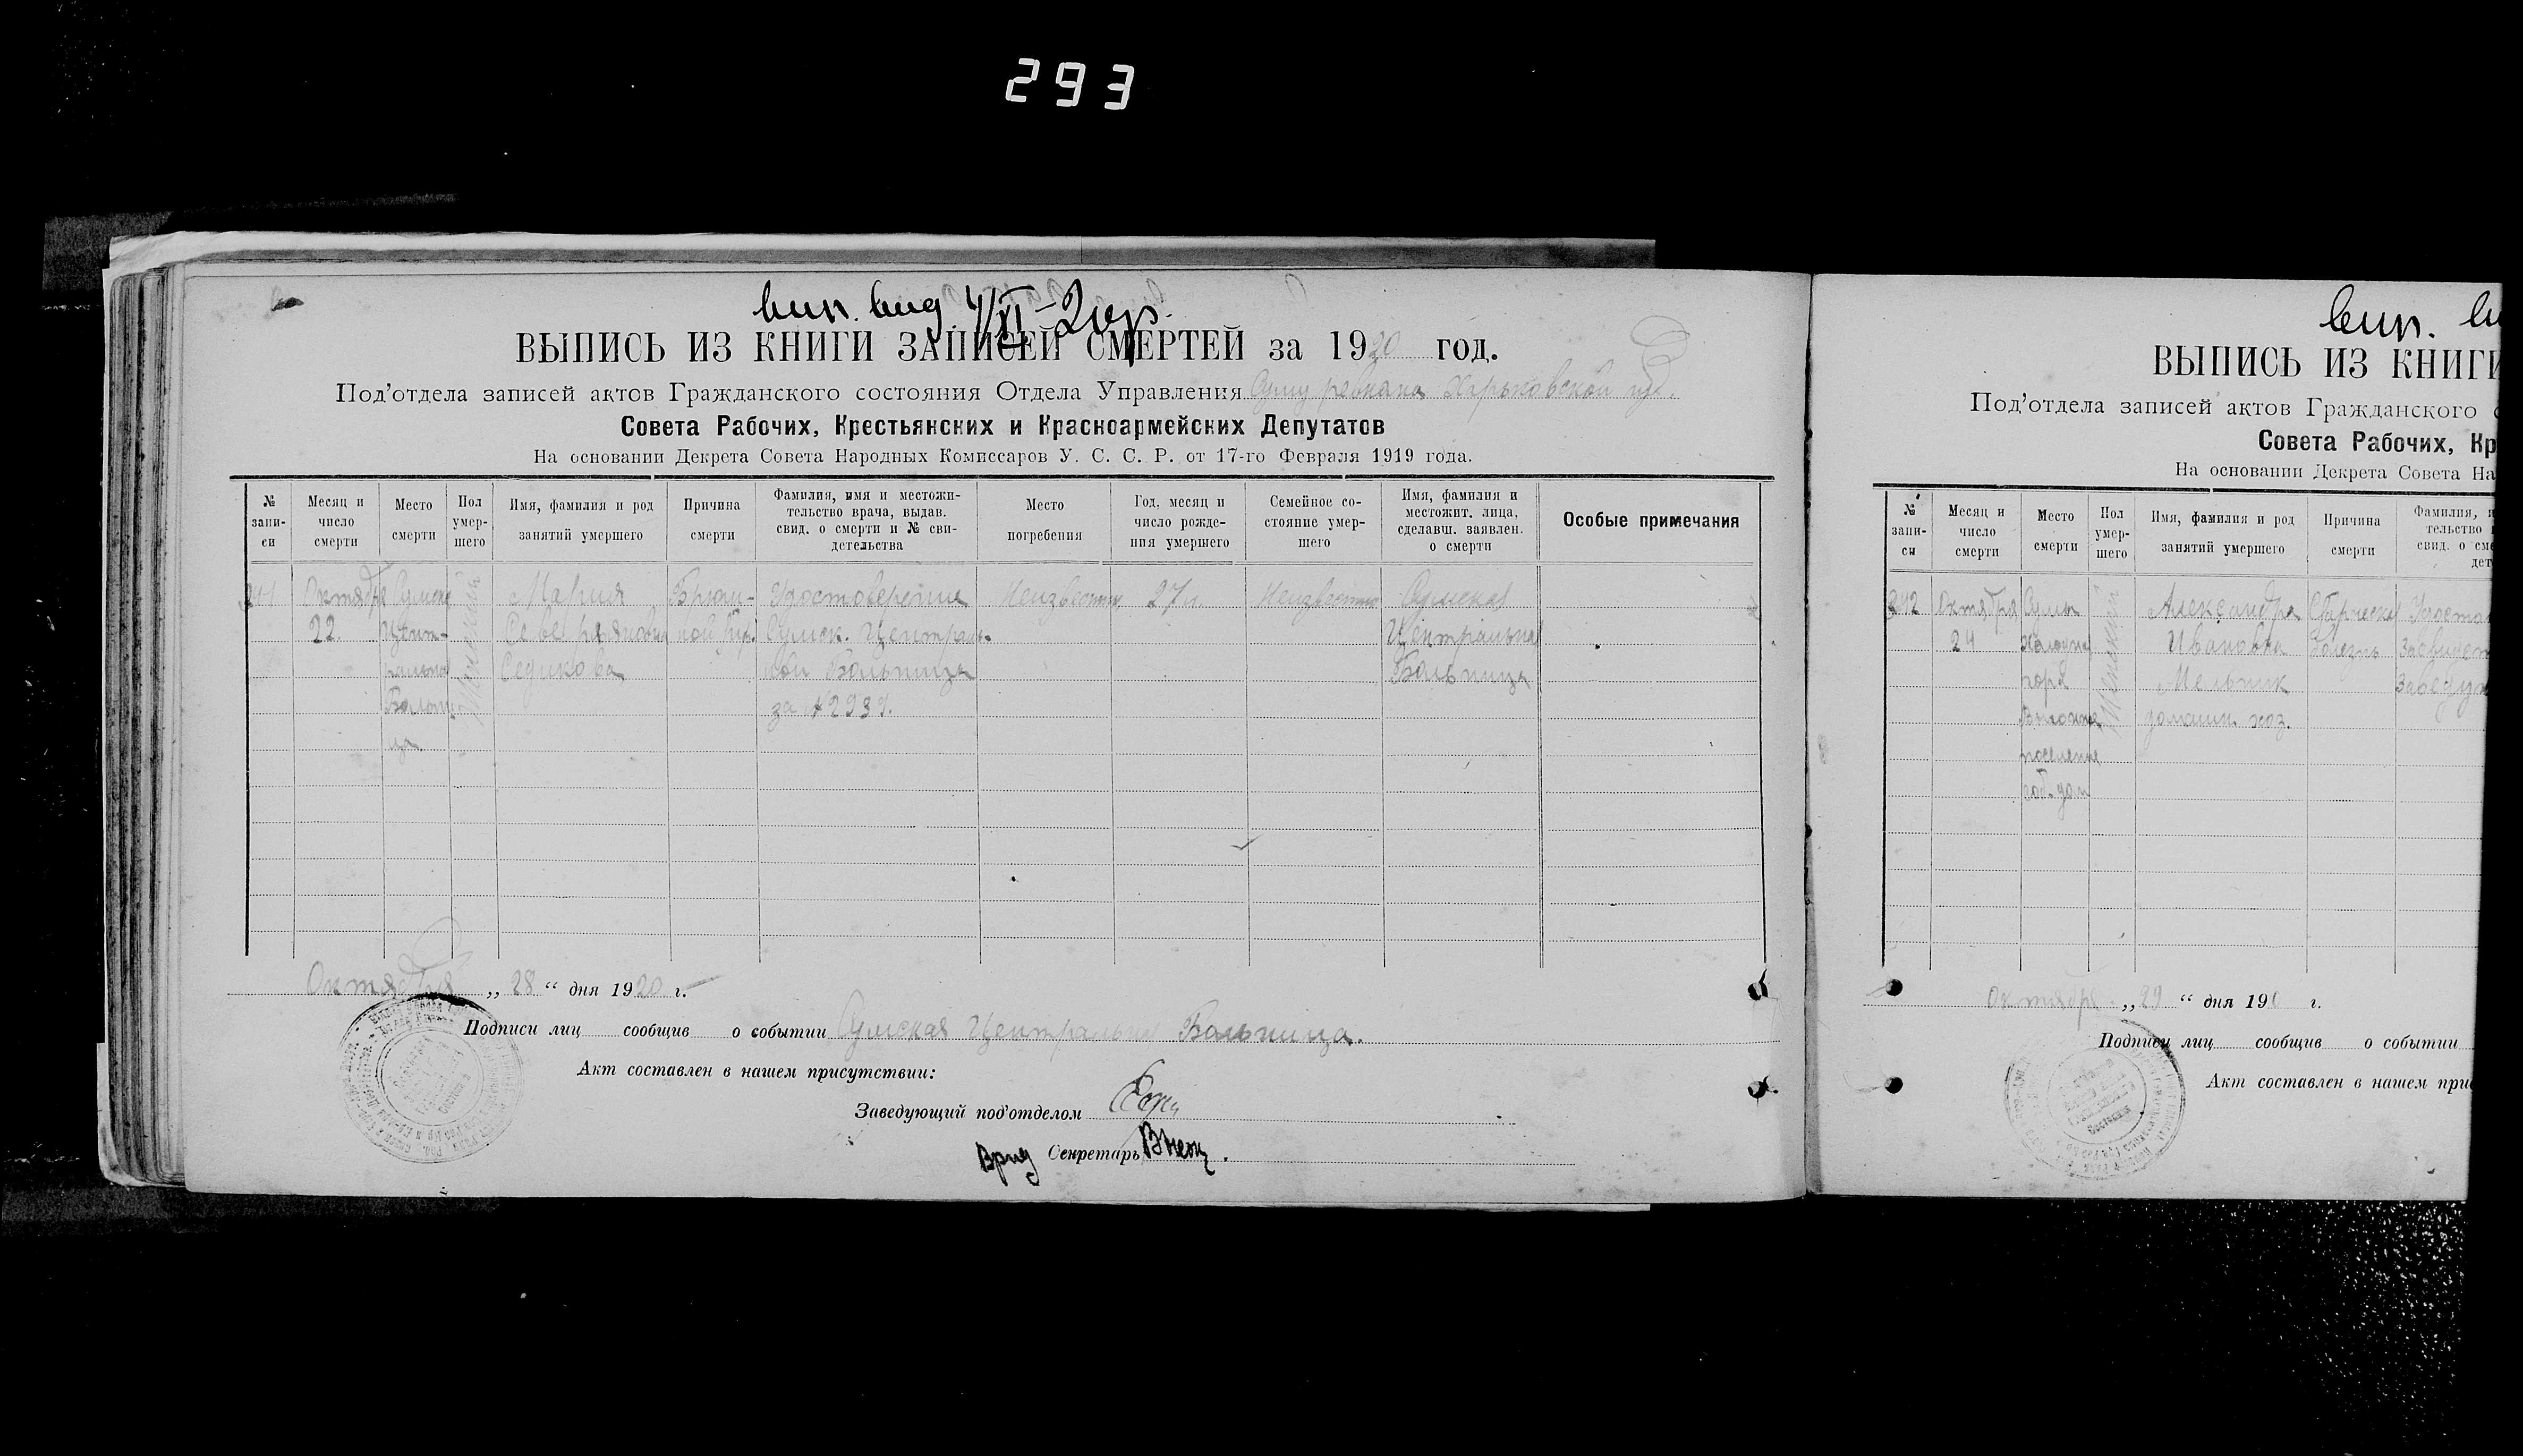 293
вип. вид. 4/XI-20р.
ВЫПИСЬ ИЗ КНИГИ ЗАПИСЕЙ СМЕРТЕЙ за 1920 год.
Под'отдела записей актов Гражданского состояния Отдела Управления Сумы ревкома Харьковской губ.
Совета Рабочих, Крестьянских и Красноармейских Депутатов
На основании Декрета Совета Народных Комиссаров У. С. С. Р. от 17-го Февраля 1919 года.
№ запи-си
Месяц и число смерти
Место смерти
Пол умер-шего
Имя, фамилия и род занятий умершего
Причина смерти
Фамилия, имя и местожи-тельство врача, выдав. свид. о смерти и № сви-детельства
Место погребения
Год, месяц и число рожде-ния умершего
Семейное со-стояние умер-шего
Имя, фамилия и местожит. лица, сделавш. заявлен. о смерти
Особые примечания
Октября Женский Мария Брюш- Удостоверение Неизвестно 27 Неизвестно Сумская
22. Цент- ной тиф. Сумск. Централь- Центральная
ральная Седикова ной Больницы Больница
Больни- за № 2939.
ца
Октября „ 28 “ дня 1920 г.
Подписи лиц сообщив о событии Сумская Центральная Больница.
Акт составлен в нашем присутствии:
Заведующий под'отделом
Врид Секретарь
вип.
ВЫПИСЬ ИЗ КНИГИ
Под'отдела записей актов Гражданского
Совета Рабочих, Кр
На основании Декрета Совета На
№ запи-си
Месяц и число смерти
Место смерти
Пол умер-шего
Имя, фамилия и род занятий умершего
Причина смерти
Фамилия, тельство свид. о
342 Октября Сумы Женский Александра Старческая
24 Ивановна болезнь
гора Мельник
домашн. хоз.
поселение
соб. дом
октября „ 29 “ дня 19 г.
Подписи лиц сообщив о событии
Акт составлен в нашем при